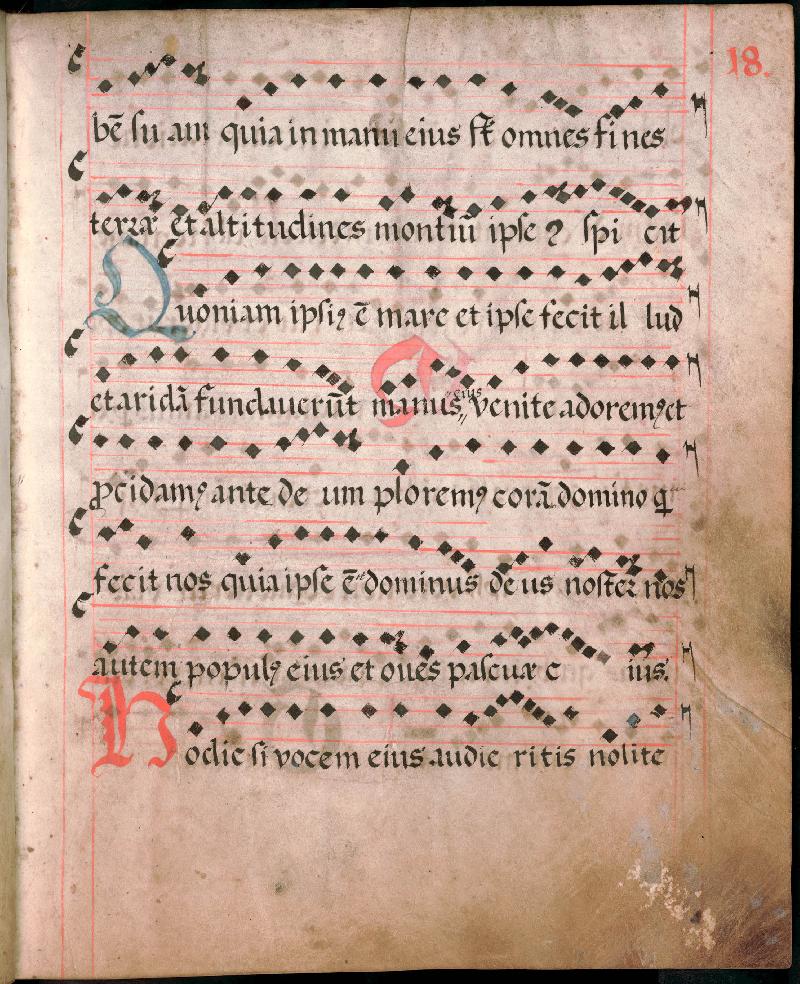 18.
bē su am quia in manu eius st̄ omnes fi nes
terræ et altitudines montiū ipse ꝯ spi cit
Quoniam ipsiꝰ ē mare et ipse fecit il lud
et aridā fundauerūt manus eius venite adoremꝰ et
ꝓcidamꝰ ante de um ploremꝰ corā domino
fecit nos quia ipse ē dominus de us noster nos
autem populꝰ eius et oues pascuæ e ius.
Hodie si vocem eius audie ritis nolite